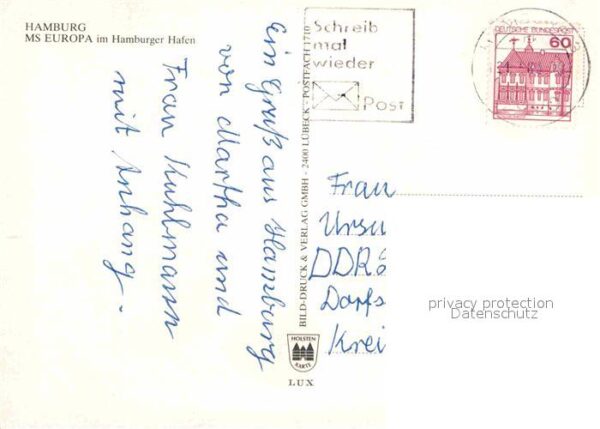 HAMBURG
MS EUROPA im Hamburger Hafen
Ein Gruß aus Hamburg
von Martha und
Frau Kuhlmann
mit Anhang.
BILD-DRUCK & VERLAG GMBH - 2400 LÜBECK - POSTFACH 1710
HOLSTEN
KARTE
LUX
Schreib
mal
wieder
Post
DEUTSCHE BUNDESPOST
60
Frau
Ursu
DDR
Dorfs
Krei
privacy protection
Datenschutz